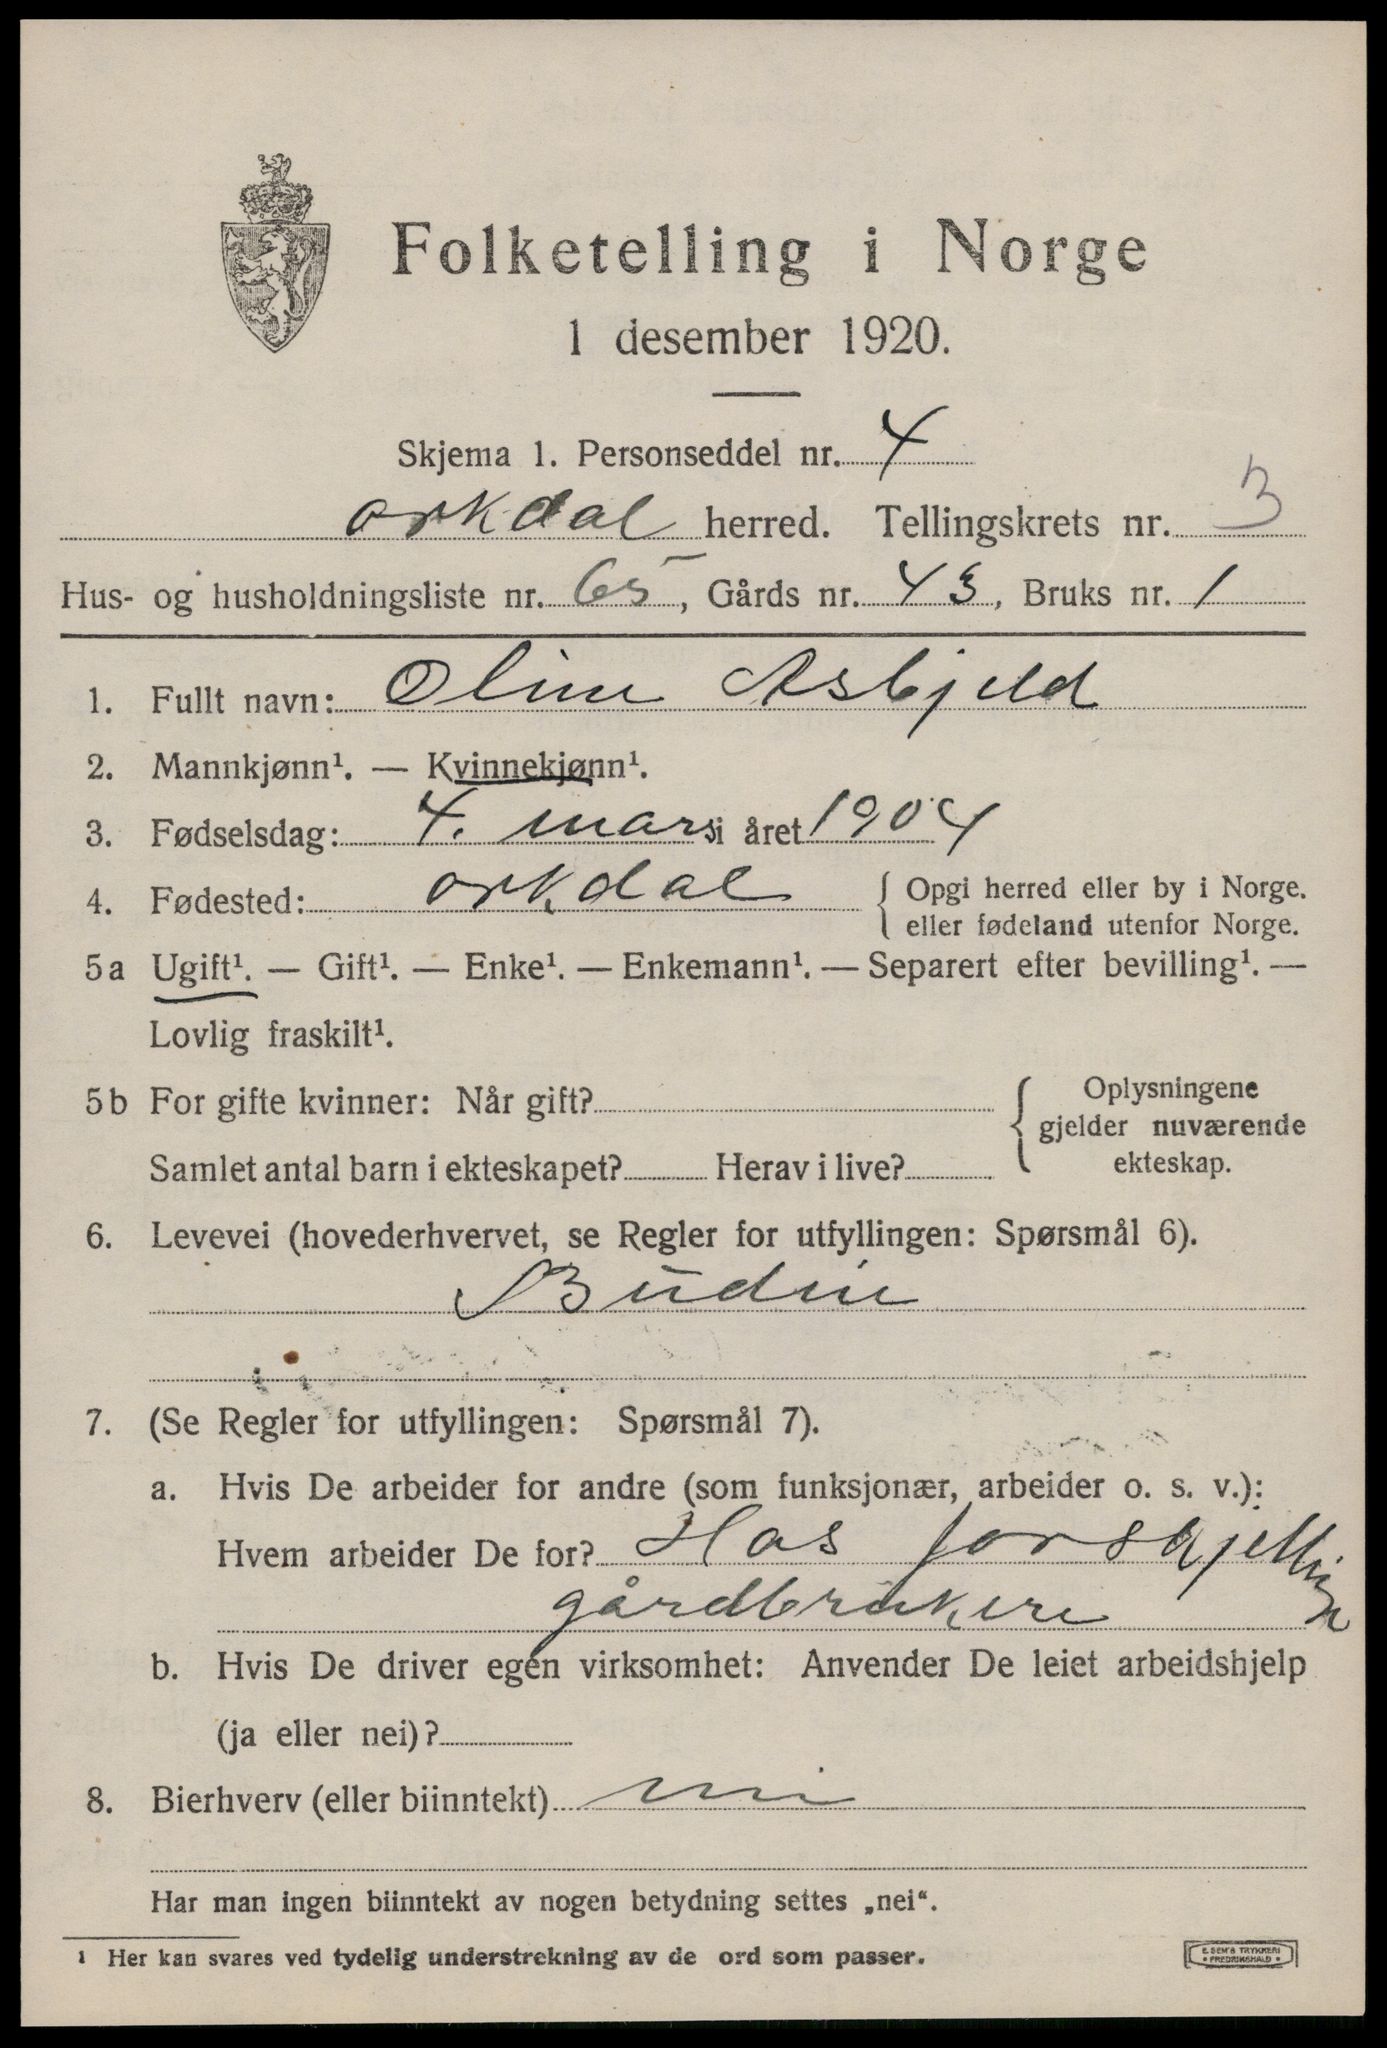 Folketelling i Norge
1 desember 1920.
Skjema 1. Personseddel nr. 4
Orkdal herred. Tellingskrets nr. 3
Hus- og husholdningsliste nr. 65, Gårds nr. 43, Bruks nr. 1
1. Fullt navn: Oline Asbjeld
2. Mannkjønn¹. — Kvinnekjønn¹.
3. Fødselsdag: 4. mars i året 1904
4. Fødested: Orkdal { Opgi herred eller by i Norge.
eller fødeland utenfor Norge.
5a Ugift¹. — Gift¹. — Enke¹. — Enkemann¹. — Separert efter bevilling¹. —
Lovlig fraskilt¹.
5b For gifte kvinner: Når gift? { Oplysningene
gjelder nuværende
Samlet antal barn i ekteskapet? Herav i live? ekteskap.
6. Levevei (hovederhvervet, se Regler for utfyllingen: Spørsmål 6).
Budeie
7. (Se Regler for utfyllingen: Spørsmål 7).
a. Hvis De arbeider for andre (som funksjonær, arbeider o. s. v.):
Hvem arbeider De for? Hos forskjellige
gårdbrukere
b. Hvis De driver egen virksomhet: Anvender De leiet arbeidshjelp
(ja eller nei)?
8. Bierhverv (eller biinntekt) nei
Har man ingen biinntekt av nogen betydning settes „nei“.
¹ Her kan svares ved tydelig understrekning av de ord som passer.
E. SEM'S TRYKKERI
• FREDRIKSHALD •